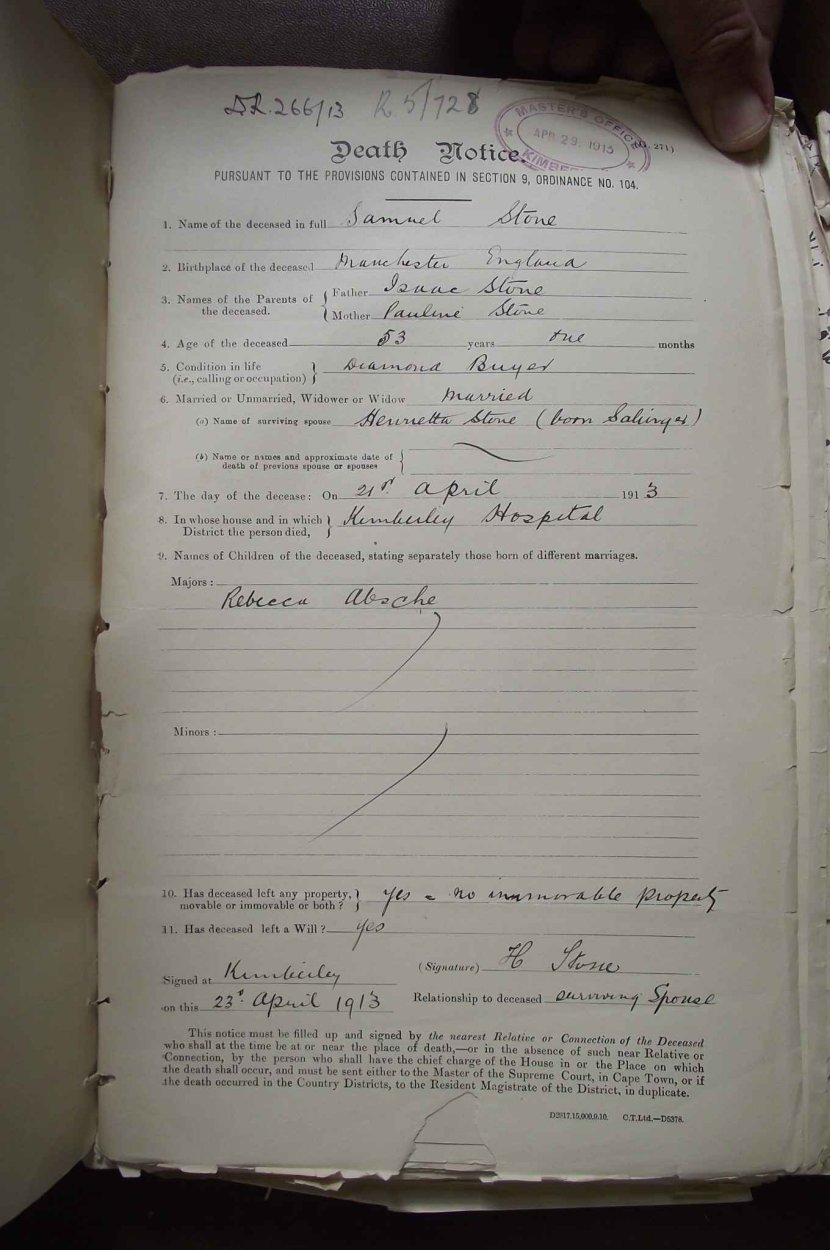 DR. 266/13 R 5/728
MASTER'S OFFICE
APR 29. 1913
KIMBER
271)
Death Notice.
PURSUANT TO THE PROVISIONS CONTAINED IN SECTION 9, ORDINANCE NO. 104.
1. Name of the deceased in full Samuel Stone
2. Birthplace of the deceased Manchester England
3. Names of the Parents of the deceased. { Father Isaac Stone
Mother Pauline Stone
4. Age of the deceased 53 years one months
5. Condition in life Diamond Buyer
(i.e., calling or occupation)
6. Married or Unmarried, Widower or Widow Married
(a) Name of surviving spouse Henrietta Stone (born Salinger)
(b) Name or names and approximate date of
death of previous spouse or spouses
7. The day of the decease: On 21st April 1913
8. In whose house and in which Kimberley Hospital
District the person died,
9. Names of Children of the deceased, stating separately those born of different marriages.
Majors :
Rebecca Absche
Minors :
10. Has deceased left any property, yes = no immovable property
movable or immovable or both ?
11. Has deceased left a Will ? yes
(Signature) H Stone
Signed at Kimberley
on this 23d. April 1913 Relationship to deceased surviving Spouse
This notice must be filled up and signed by the nearest Relative or Connection of the Deceased
who shall at the time be at or near the place of death,—or in the absence of such near Relative or
Connection, by the person who shall have the chief charge of the House in or the Place on which
the death shall occur, and must be sent either to the Master of the Supreme Court, in Cape Town, or if
the death occurred in the Country Districts, to the Resident Magistrate of the District, in duplicate.
D2817.15,000.9.10. C.T.Ltd.—D5378.